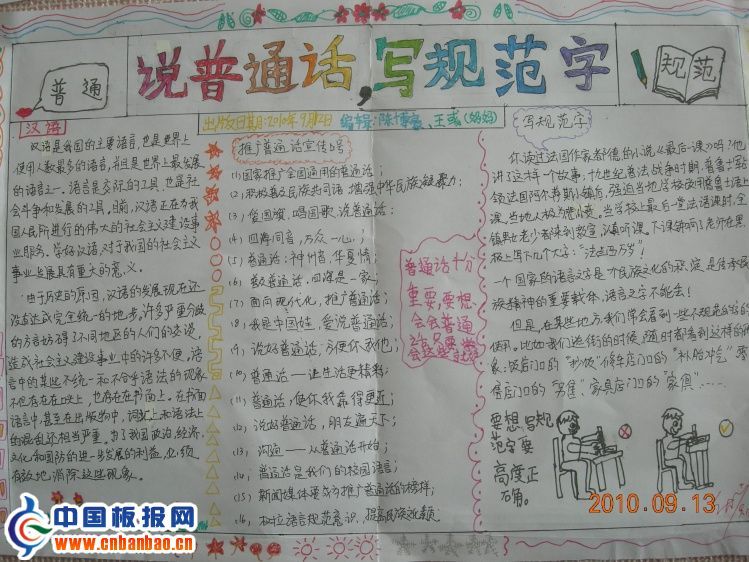 普通
说普通话,写规范字
规范
出版日期:2010年9月12日 编辑:陈博豪、王彧(妈妈)
汉语
汉语是我国的主要语言,也是世界上
使用人数最多的语言,并且是世界上最发展
的语言之一。语言是交际的工具,也是社
会斗争和发展的工具。目前,汉语正在为我
国人民所进行的伟大的社会主义建设事
业服务。学好汉语,对于我国的社会主义
事业发展具有重大的意义。
由于历史的原因,汉语的发展现在还
没有达成完全统一的地步,许多严重分歧
的方言妨碍了不同地区的人们的交谈,
造成社会主义建设事业中的许多不便,语
言中的某些不统一和不合乎语法的现象
不但存在在口头上,也存在在书面上。在书面
语言中,甚至在出版物中,词汇上和语法上
的混乱还相当严重。为了我国政治、经济、
文化和国防的进一步发展的利益,必须
有效地消除这些现象。
推广普通话宣传口号
(1)国家推广全国通用的普通话;
(2)积极普及民族共同语 增强中华民族凝聚力;
(3)爱国旗,唱国歌,说普通话;
(4)四海同音,万众一心;
(5)普通话:神州音,华夏情;
(6)普及普通话,四海是一家;
(7)面向现代化,推广普通话;
(8)我是中国娃,爱说普通话;
(9)说好普通话,方便你我他;
(10)普通话——让生活更精彩;
(11)普通话,使你我靠得更近;
(12)说好普通话,朋友遍天下;
(13)沟通——从普通话开始;
(14)普通话是我们的校园语言;
(15)新闻媒体要成为推广普通话的榜样;
(16)树立语言规范意识,提高民族文化素质
普通话十分
重要,要想
会会普通
写规范字
你读过法国作家都德的小说《最后一课》吗?他
讲了这样一个故事,十九世纪普法战争时期,普鲁士占
领法国阿尔萨斯小镇后,强迫当地学校改用普鲁士语上
课,当地人极为愤慨。当学校上最后一堂法语课时,全
镇男女老少都来到教室,认真听课。下课钟响了老师在黑
板上写下几个大字:“法兰西万岁”!
一个国家的语言文字是一个民族文化的积淀,是传承民
族精神的重要载体,语言文字不能丢!
但是,在某些地方,我们常会看到一些不规范的字的
使用。比如我们逛街的时候,随时都看到这样的现
象:饭店门口的“抄饭”修车店门口的“补胎冲气”零
售店门口的“另售”、家具店门口的“家俱”……
要想写规
范字要
高度正
确。
2010.09.13
中国板报网
www.cnbanbao.cn